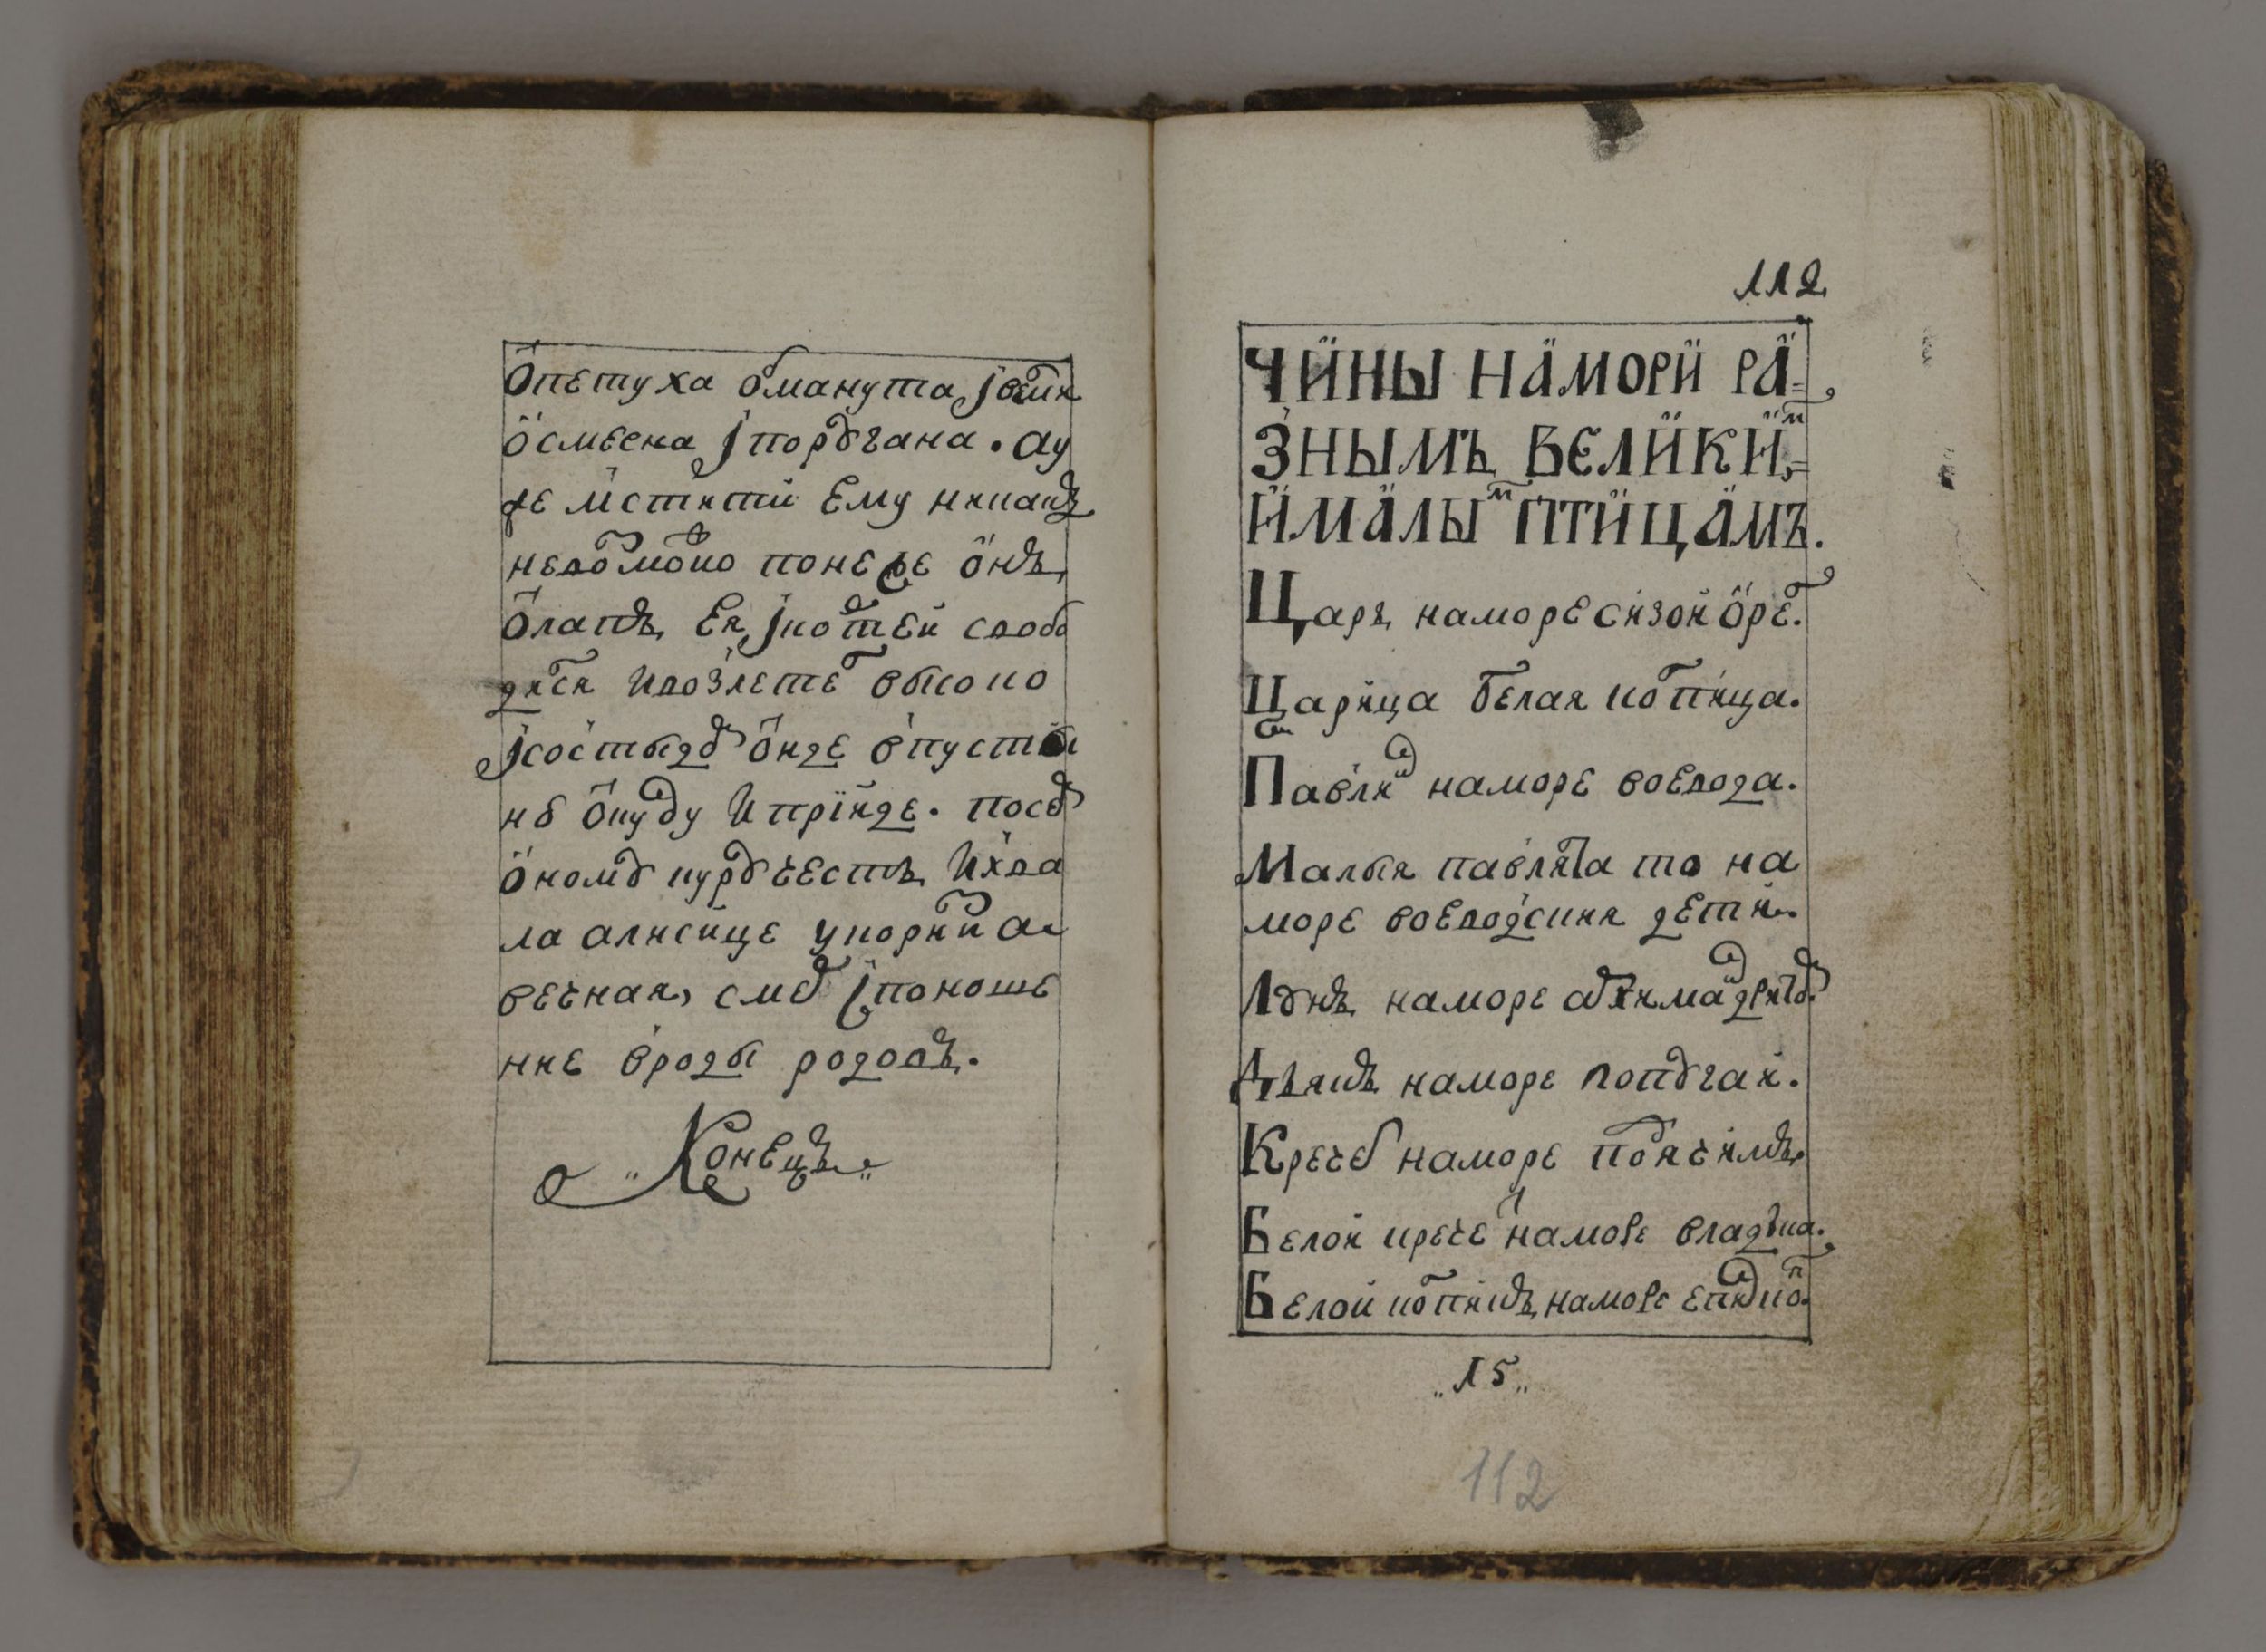 Ѻпетуха обманута, і вельми
ѻсмеена і поругана. а у
же и мстити ему никакъ
невозможно понеже ѻнъ
ѻлапъ ея і когтей свобо
дился и возлетел высоко
і со стыдом ѻнде в пусты
ню ѻкуду и прииде. посем
ѻному куру честь и хва
ла а лисице укоризна
вечная, смех і поноше
ние в роды родовъ.
„Конецъ„
112
ЧИНЫ НАМОРИ РА=
ЗНЫМЪ ВЕЛИКИм=
И МАЛЫм ПТИЦАМЪ.
Царь наморе сизой ѻрел.
Царица белая колпица.
Павлин наморе воевода.
Малыя павлята то на
море воеводския дети.
Лунь наморе архимандритом.
Дьякъ наморе попугай.
Кречет наморе подьячимъ
Белой кречет наморе владыка.
Белой колпикъ наморе епископ.
„15„
112